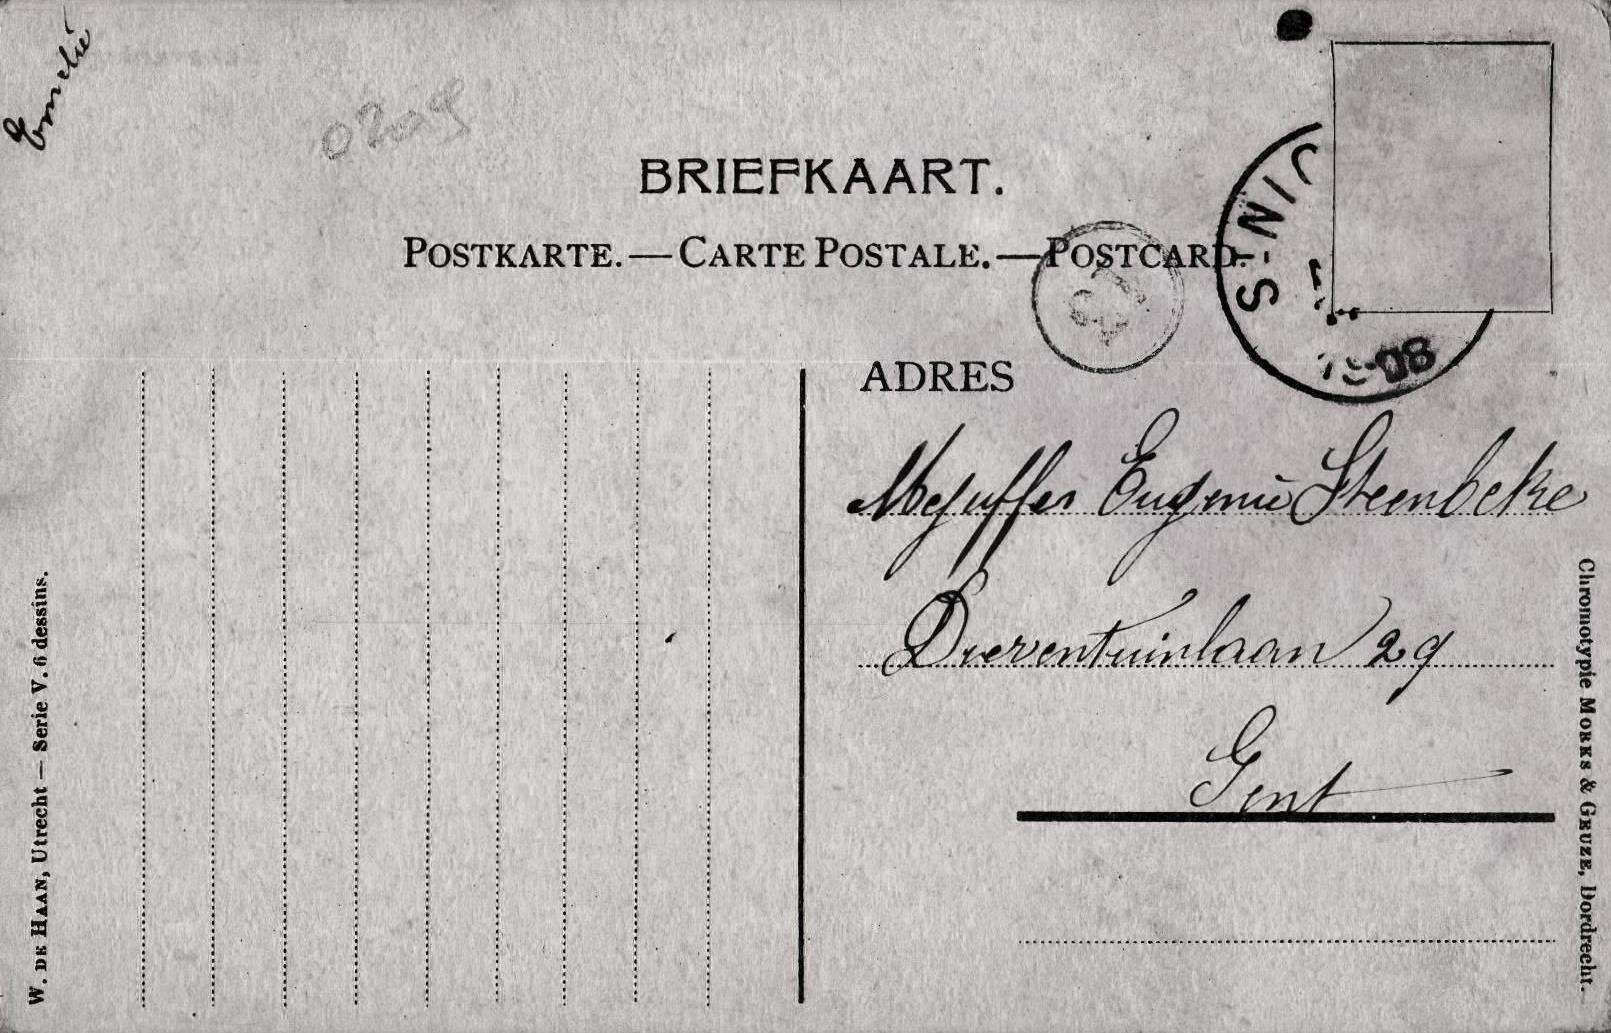 Emelie
0209
BRIEFKAART.
POSTKARTE. — CARTE POSTALE. — POSTCARD.
S-NIC
1908
ADRES
Mejuffer Eugenie Steenbeke
Dierentuinlaan 29
Gent
W. DE HAAN, Utrecht — Serie V. 6 dessins.
Chromotypie MORKS & GEUZE, Dordrecht.